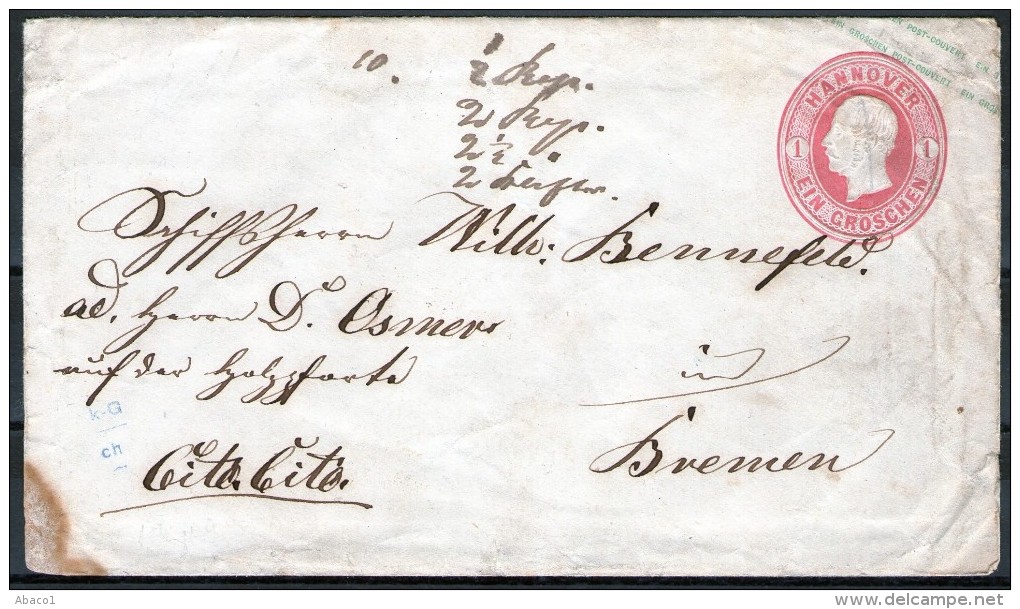 EIN GROSCHEN POST-COUVERT EIN GROSCHEN
HANNOVER
1 1
EIN GROSCHEN
10.
½
2
2½ "
2
Schiffsherrn Wilh: Bennefeld.
ad. Herrn D. Osmers
auf der Holzpforte in
k-G
ch
Cito. Cito. Bremen
Abaco1
www.delcampe.net